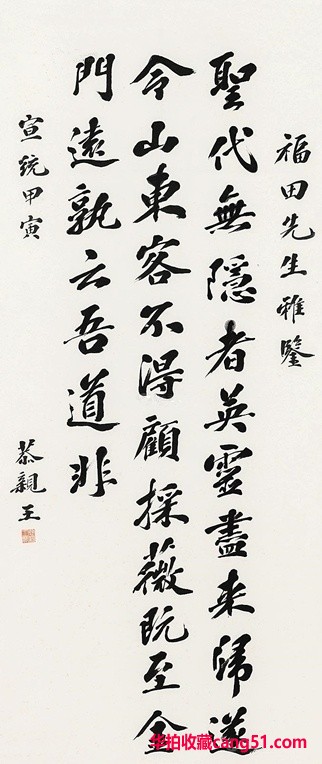 福田先生雅鑒
聖代無隱者英靈盡來歸遂
令山東客不得顧採薇既至金
門遠孰云吾道非
宣統甲寅
恭親王
华拍收藏cang51.com